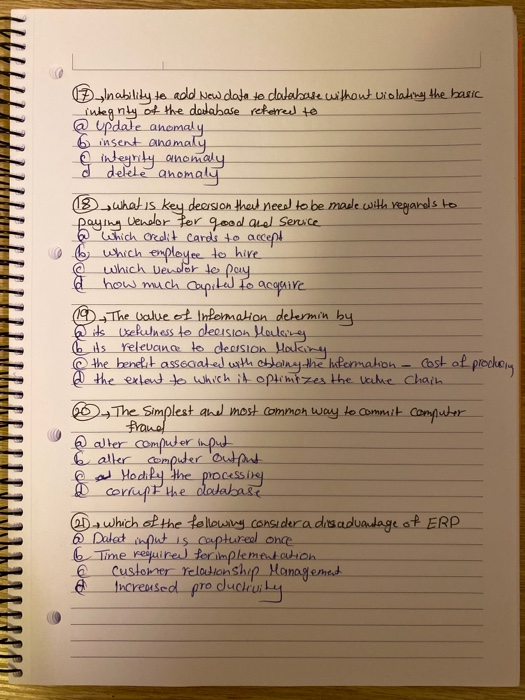 17 → Inability to add New data to database without violating the basic
integrity of the database referred to
a update anomaly
b insert anomaly
c integrity anomaly
d delete anomaly
18 → what is key decision that need to be made with regards to
paying vendor for good and service
a which credit cards to accept
b which employee to hire
c which vendor to pay
d how much capital to acquire
19 → The value of Information determin by
a its usefulness to decision Making
b its relevance to decision Making
c the benefit associated with obtaing the information - cost of producing
d the extent to which it optimizes the value chain
20 → The Simplest and most common way to commit computer
fraud
a alter computer input
b alter computer output
c Modify the processing
d corrupt the database
21 → which of the following consider a disadvantage of ERP
a Datat input is captured once
b Time required for implementation
c Customer relationship Management
d Increased productivity